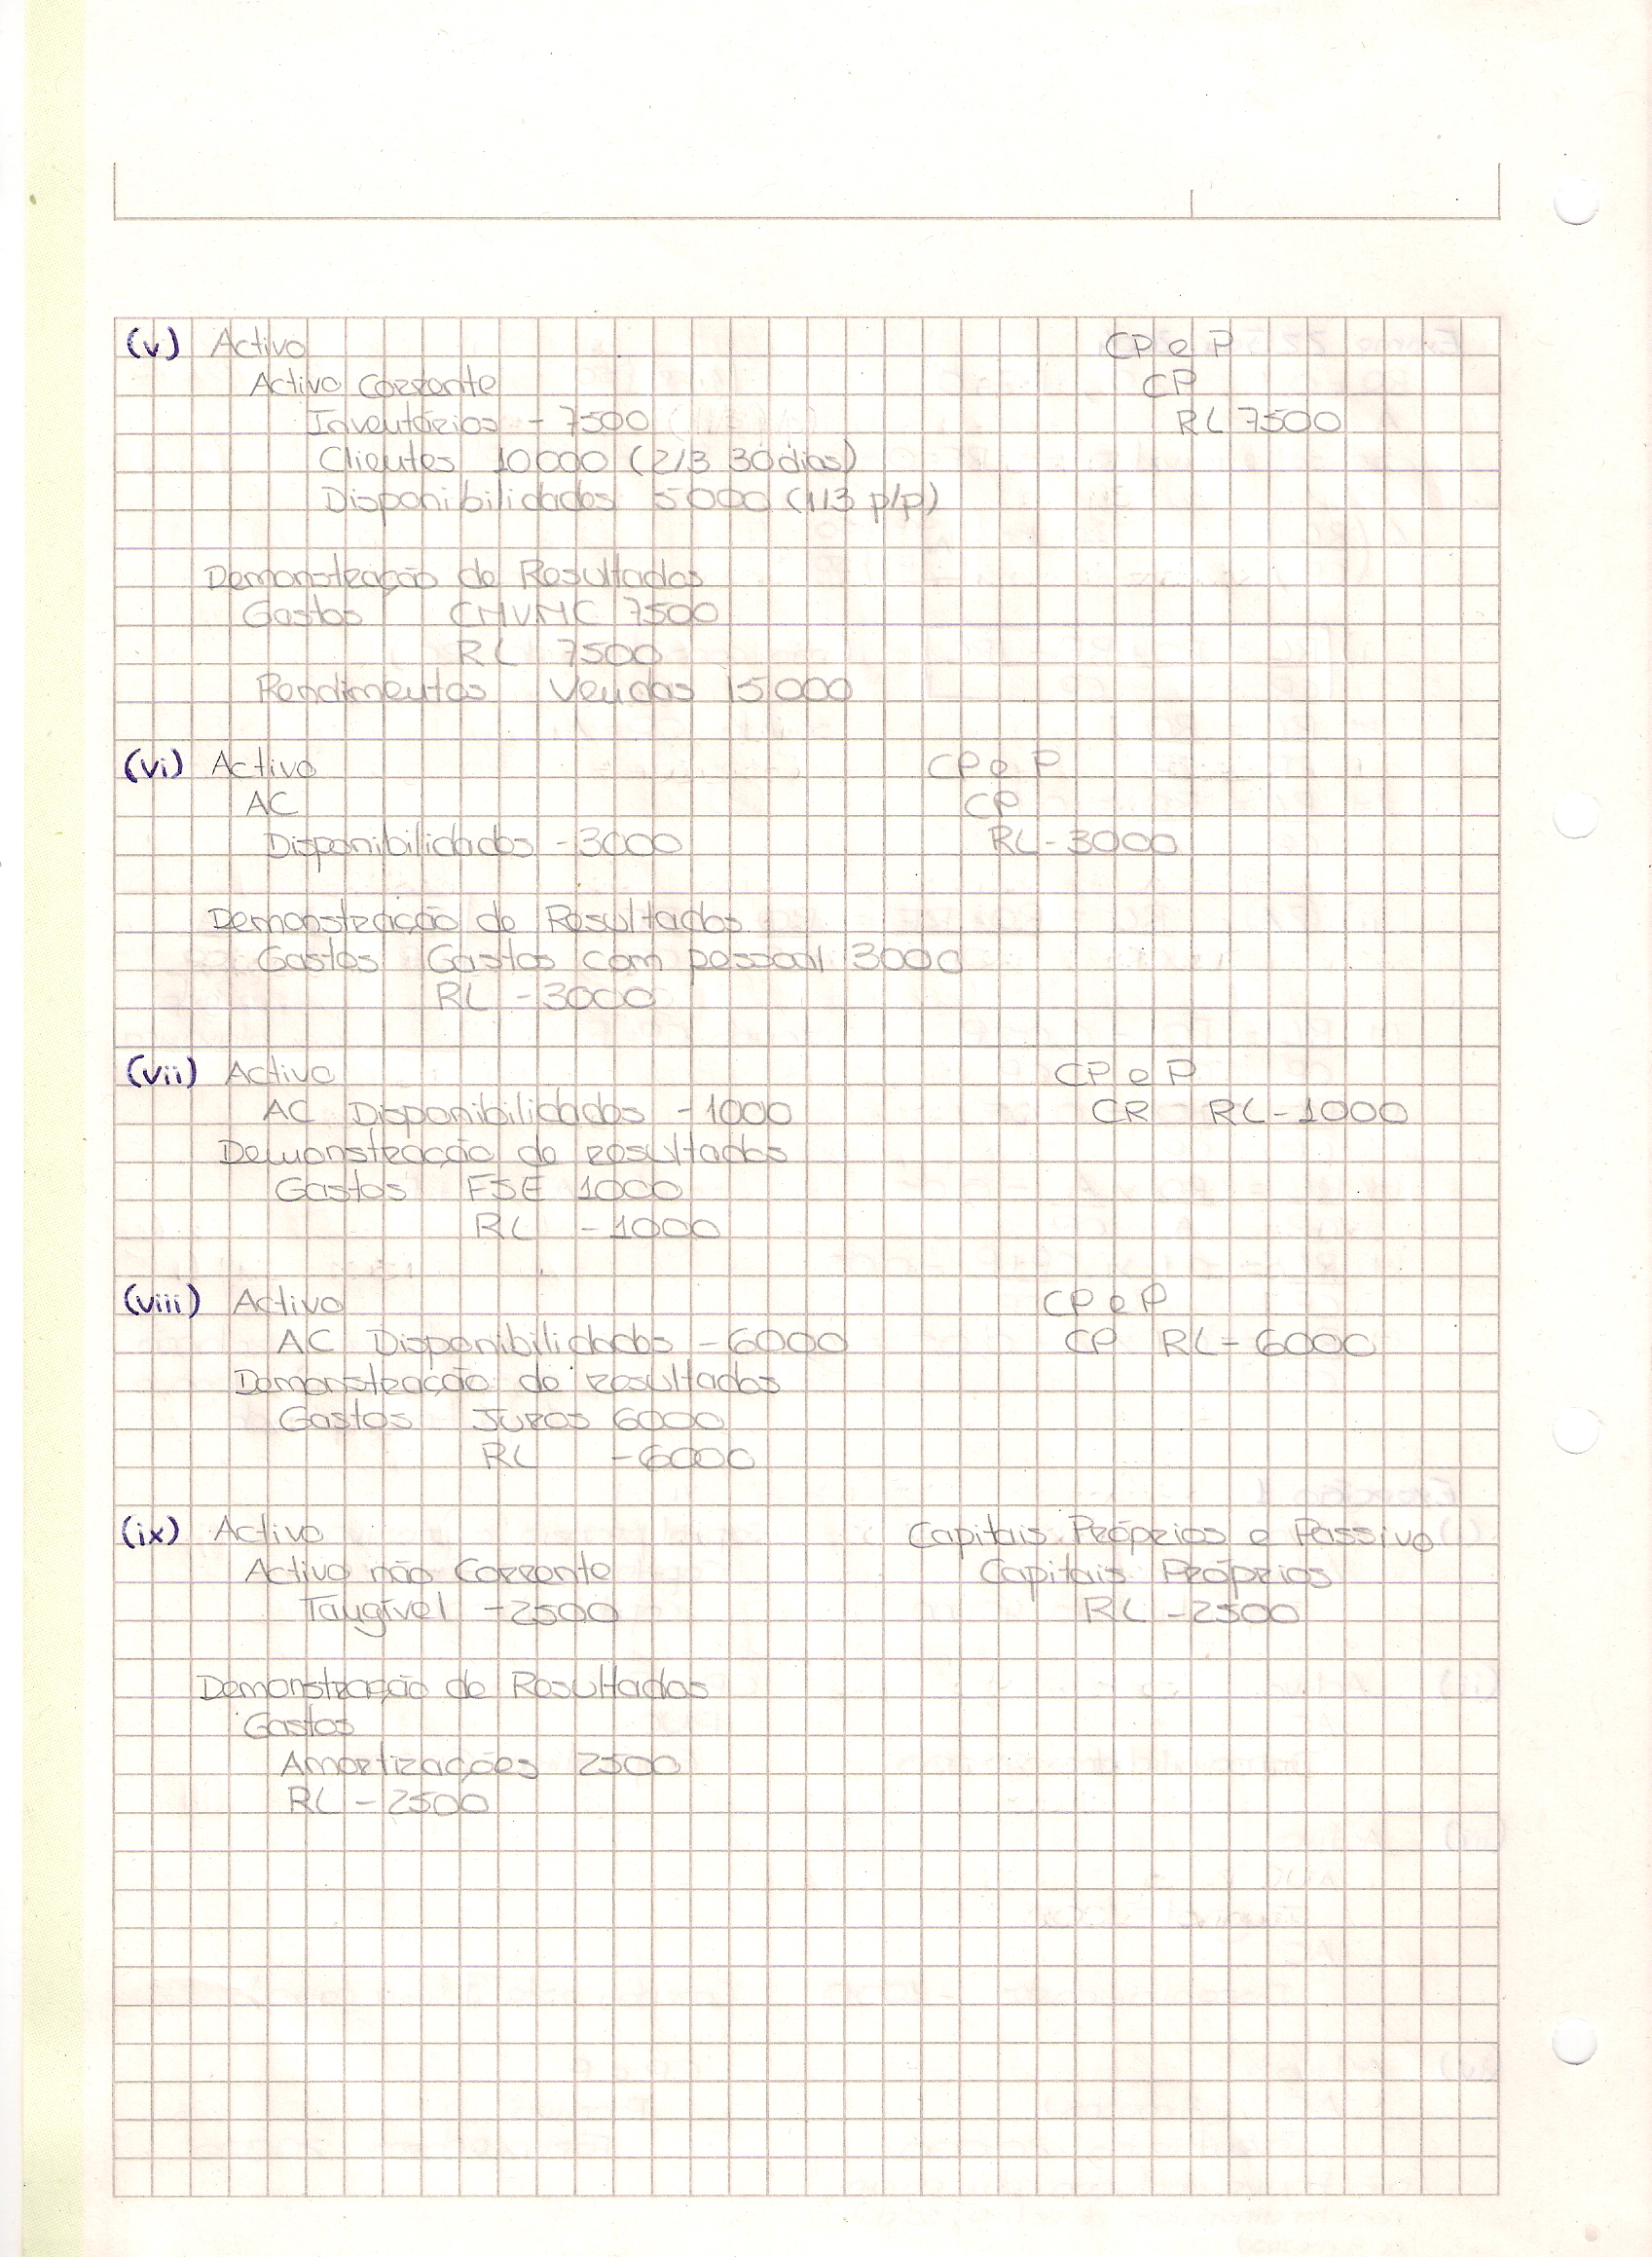 (v) Activo CP e P
Activo Corrente CP
Inventários - 7500 RL 7500
Clientes 10000 (2/3 30 dias)
Disponibilidades 5000 (1/3 p/p)
Demonstração de Resultados
Gastos CMVMC 7500
RL 7500
Rendimentos Vendas 15000
(vi) Activo CP e P
AC CP
Disponibilidades - 3000 RL - 3000
Demonstração de Resultados
Gastos Gastos com pessoal 3000
RL - 3000
(vii) Activo CP e P
AC Disponibilidades - 1000 CR RL - 1000
Demonstração de resultados
Gastos FSE 1000
RL - 1000
(viii) Activo CP e P
AC Disponibilidades - 6000 CP RL - 6000
Demonstração de resultados
Gastos Juros 6000
RL - 6000
(ix) Activo Capitais Próprios e Passivo
Activo não Corrente Capitais Próprios
Tangível - 2500 RL - 2500
Demonstração de Resultados
Gastos
Amortizações 2500
RL - 2500